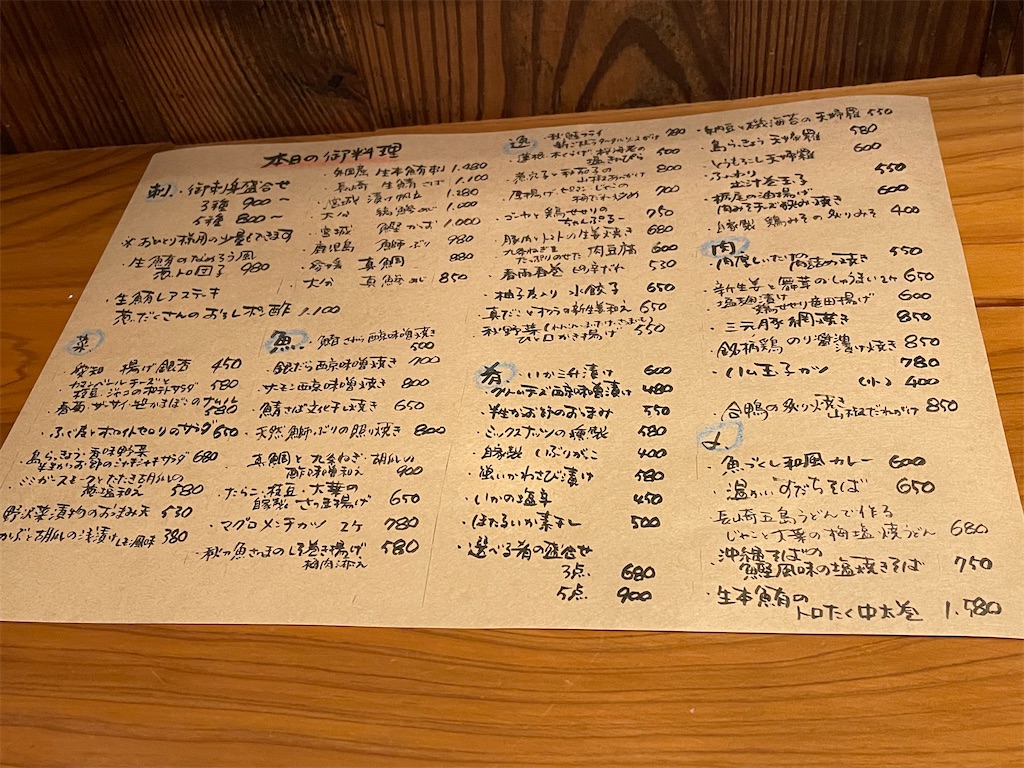 本日の御料理
刺 御刺身盛合せ
3種 900～
5種 800～
※おひとり様用の少量もできます
・生鮪の
葱トロ団子 980
・生鮪レアステーキ
葱だくさんのおろしポン酢 1.100
生本鮪刺 1.480
・長崎 生鯖さば 1.100
・宮城 漬け帆立 1.280
・大分 1.000
・宮城 鰹かつお 1.000
・鹿児島 鰤ぶり 980
真鯛 880
・大分 真鯵あじ 850
菜
・愛知 揚げ銀杏 450
・カマンベールチーズと
枝豆、ジャコのポテトサラダ 580
・春菊、ザーサイ、かまぼこのナムル 580
・ホワイトセロリのサラダ 650
・島らっきょう、香味野菜
サラダ 680
たたき胡瓜の
葱塩和え 580
野沢菜漬物のおつまみ天 530
胡瓜の浅漬け 380
魚
・鰆さわら西京味噌焼き 500
・銀だら西京味噌焼き 700
・サーモン西京味噌焼き 800
・鯖さば文化干し焼き 650
・天然鰤ぶりの照り焼き 800
・真鯛と九条ねぎ、胡瓜の
酢味噌和え 900
・たらこ、枝豆、大葉の
自家製さつま揚げ 650
・マグロメンチカツ 2ケ 780
・秋刀魚さんまのしそ巻き揚げ 580
梅肉添え
逸 ・秋鮭フライ
タルタルソースがけ 780
・蓮根、木くらげ、
塩きんぴら 500
山椒あんかけ 800
・厚揚げ、ピーマン、じゃこの
700
・ゴーヤと鶏せせりの
ちゃんぷるー 750
・豚肉とトマトの生姜焼き 680
・九条ねぎを
たっぷりのせた 肉豆腐 600
・春雨春巻 ピリ辛だれ 530
・柚子皮入り 水餃子 650
・真だことオクラの新生姜和え 650
・秋野菜
ひと口かき揚げ 550
肴
・いか三升漬け 600
・クリームチーズ西京味噌漬け 480
・おつまみ 550
・ミックスナッツの燻製 580
・自家製 いぶりがっこ 400
・蛍いかわさび漬け 580
・いかの塩辛 450
・ほたるいか素干し 500
・選べる肴の盛合せ
3点 680
5点 900
・納豆と磯海苔の天婦羅 550
・島らっきょう 天婦羅 580
・とうもろこし天婦羅
・ふんわり
出汁巻玉子 550
・栃尾の油揚げ
肉みそチーズ挟み焼き 600
・自家製 鶏みその炙りみそ 400
肉
・肉厚しいたけの
肉詰め焼き 550
・新生姜と舞茸のしゅうまい 2ケ 650
・塩麹漬け
鶏せせり竜田揚げ 600
・三元豚網焼き 850
・銘柄鶏 のり醤油漬け焼き 850
・ハム玉子カツ 780
(小) 400
・合鴨の炙り焼き
山椒だれがけ 850
〆
・魚づくし和風カレー 600
・温かい すだちそば 650
・長崎五島うどんで作る
じゃこと大葉の梅塩焼うどん 680
・沖縄そばの
鰹風味の塩焼きそば 750
・生本鮪の
トロたく中太巻 1.580